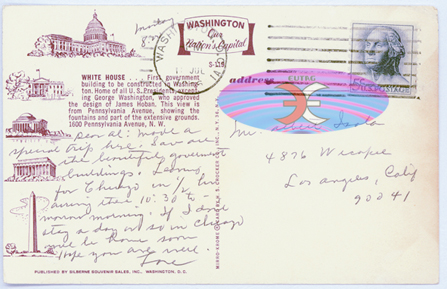 WASHINGTON
Our
Nation's Capital
S-118
WHITE HOUSE First government
building to be constructed in Washing-
ton. Home of all U. S. Presidents, except
ing George Washington, who approved
the design of James Hoban. This view is
from Pennsylvania Avenue, showing the
fountains and part of the extensive grounds.
1600 Pennsylvania Avenue, N. W.
address
5c U.S. POSTAGE
Dear al: made a
special trip here. Saw all
the beautiful government
buildings. Leaving
for Chicago in 1/2 hr
arriving there 10:30 to-
morrow morning. If I don't
stay a day or so in Chicago
will be home soon
Hope you are well.
Love
4876
Los Angeles, Calif
90041
PUBLISHED BY GILBERNE SOUVENIR SALES, INC., WASHINGTON, D.C.